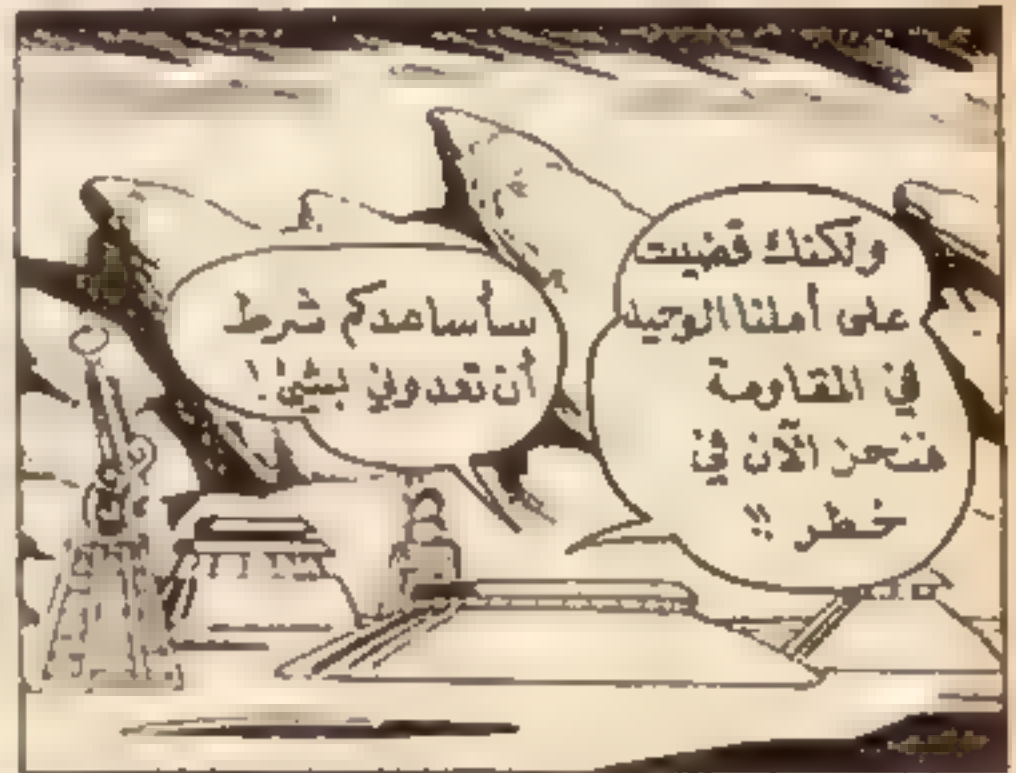 ولكنك قضيت
على أملنا الوحيد
في المقاومة
فنحن الآن في
خطر !!
سأساعدكم شرط
أن تعدوني بشئ !